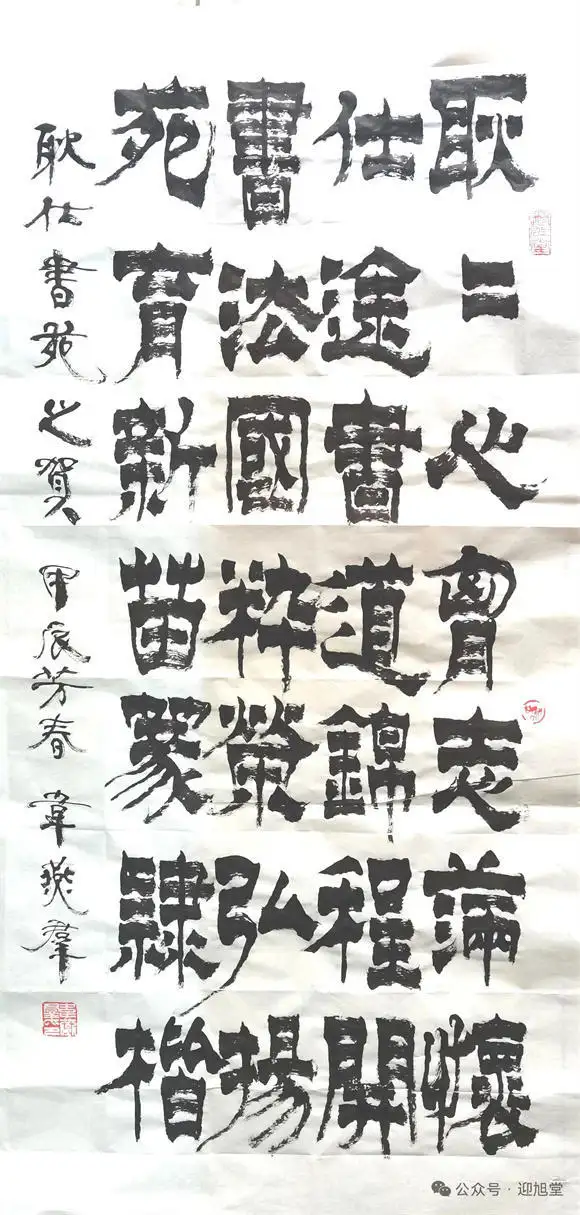 耿二心胷志滿懷
仕途書道錦程開
書法國粹榮弘揚
苑育新苗篆隸楷
耿仕書苑之賀 甲辰芳春 韋燕羣
公众号·迎旭堂